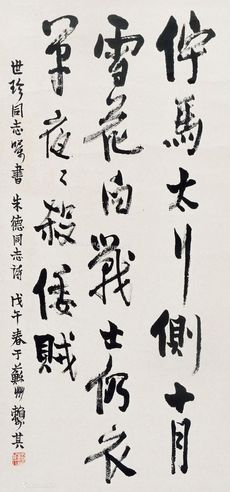 佇馬太行側十月
雪花白戰士仍衣
單夜〻殺倭賊
世珍同志囑書 朱德同志詩 戊午春于蘇州 費新其